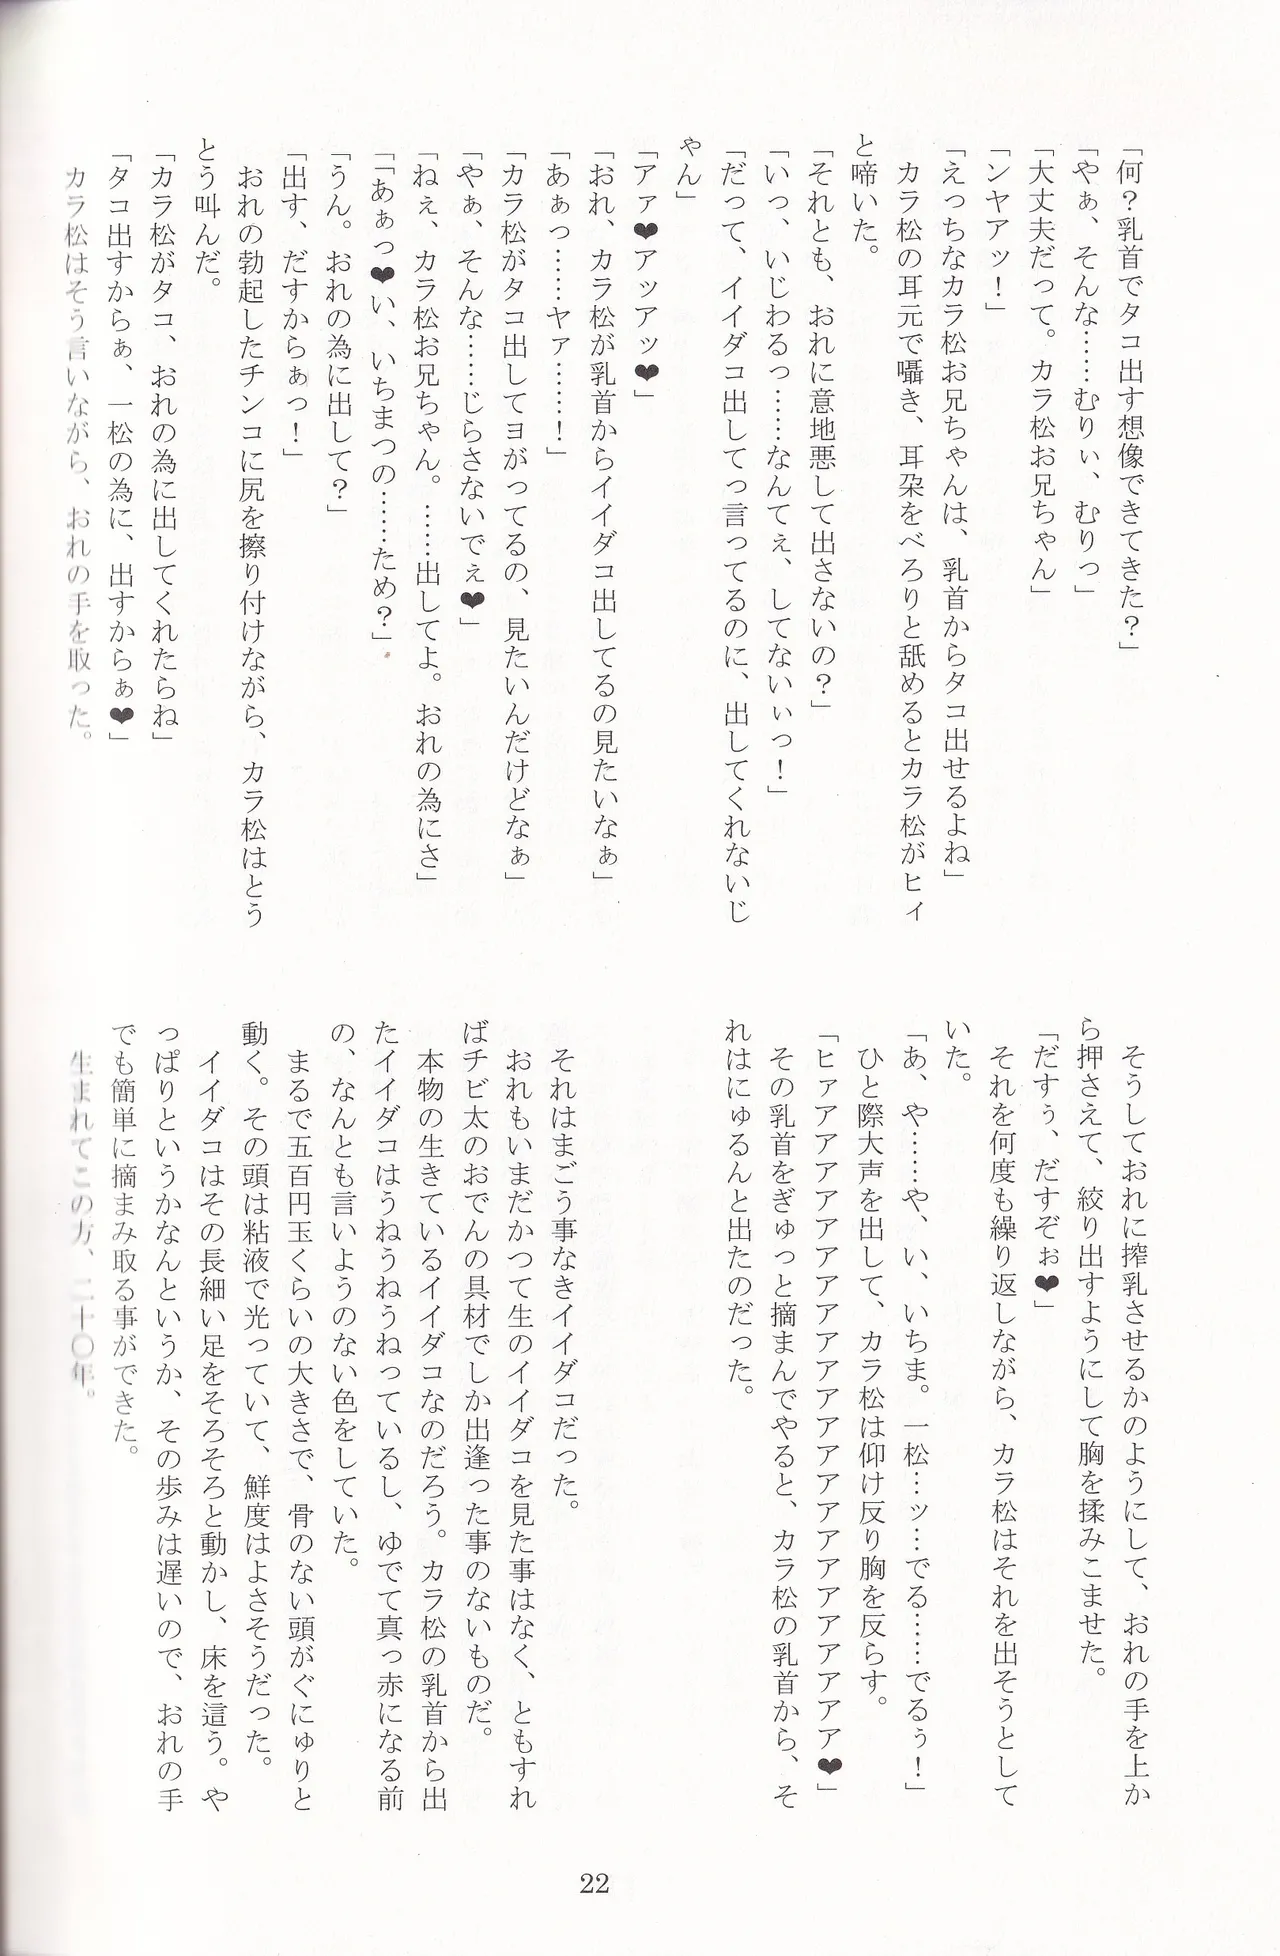 「何？乳首でタコ出す想像できてきた？」
「やぁ、そんな……むりぃ、むりっ」
「大丈夫だって。カラ松お兄ちゃん」
「ンヤアッ！」
「えっちなカラ松お兄ちゃんは、乳首からタコ出せるよね」
カラ松の耳元で囁き、耳朶をべろりと舐めるとカラ松がヒィ
と啼いた。
「それとも、おれに意地悪して出さないの？」
「いっ、いじわるっ……なんてぇ、してないぃっ！」
「だって、イイダコ出してって言ってるのに、出してくれないじ
ゃん」
「アァ❤アッアッ❤」
「おれ、カラ松が乳首からイイダコ出してるの見たいなぁ」
「あぁっ……ヤァ……！」
「カラ松がタコ出してヨがってるの、見たいんだけどなぁ」
「やぁ、そんな……じらさないでぇ❤」
「ねぇ、カラ松お兄ちゃん。……出してよ。おれの為にさ」
「「あぁっ❤い、いちまつの……ため？」
「うん。おれの為に出して？」
「出す、だすからぁっ！」
おれの勃起したチンコに尻を擦り付けながら、カラ松はとう
とう叫んだ。
「カラ松がタコ、おれの為に出してくれたらね」
「タコ出すからぁ、一松の為に、出すからぁ❤」
カラ松はそう言いながら、おれの手を取った。
そうしておれに搾乳させるかのようにして、おれの手を上か
ら押さえて、絞り出すようにして胸を揉みこませた。
「だすぅ、だすぞぉ❤」
それを何度も繰り返しながら、カラ松はそれを出そうとして
いた。
「あ、や……や、い、いちま。一松…ッ…でる……でるぅ！」
ひと際大声を出して、カラ松は仰け反り胸を反らす。
「ヒァアアアアアアアアアアアアアアアアアアアアアアア❤」
その乳首をぎゅっと摘まんでやると、カラ松の乳首から、そ
れはにゅるんと出たのだった。
それはまごう事なきイイダコだった。
おれもいまだかつて生のイイダコを見た事はなく、ともすれ
ばチビ太のおでんの具材でしか出逢った事のないものだ。
本物の生きているイイダコなのだろう。カラ松の乳首から出
たイイダコはうねうねうねっているし、ゆでて真っ赤になる前
の、なんとも言いようのない色をしていた。
まるで五百円玉くらいの大きさで、骨のない頭がぐにゅりと
動く。その頭は粘液で光っていて、鮮度はよさそうだった。
イイダコはその長細い足をそろそろと動かし、床を這う。や
っぱりというかなんというか、その歩みは遅いので、おれの手
でも簡単に摘まみ取る事ができた。
生まれてこの方、二十〇年。
22